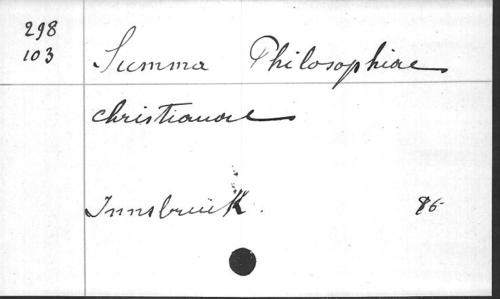 298
103
Summa Philosophiae
christianae
Innsbruck. 86